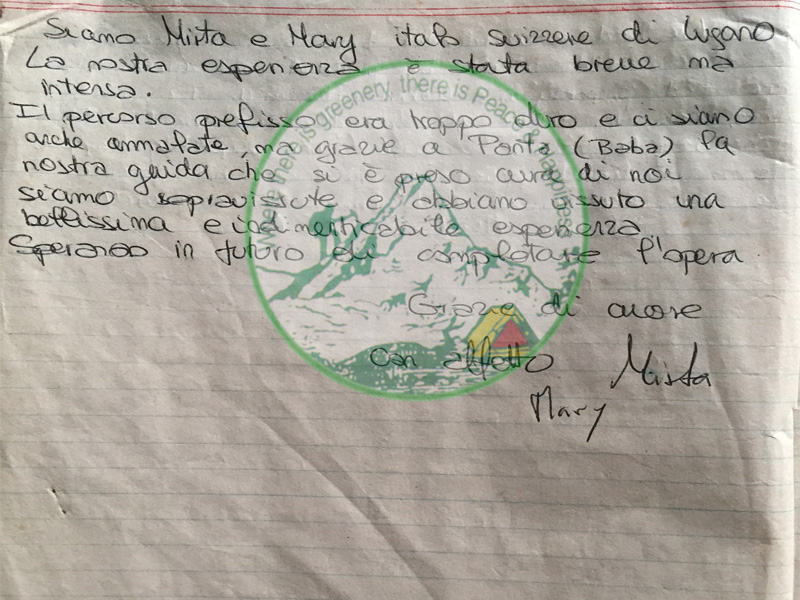 Siamo Mirta e Mary italo svizzere di Lugano
La nostra esperienza è stata breve ma
intensa.
Il percorso prefisso era troppo duro e ci siamo
anche ammalate, ma grazie a Ponta (Baba) la
nostra guida che si è preso cura di noi
siamo sopravissute e abbiamo vissuto una
bellissima e indimenticabile esperienza
Sperando in futuro di completare l'opera.
Grazie di cuore
Con affetto Mirta
Mary
Where there is greenery, there is Peace & Happiness